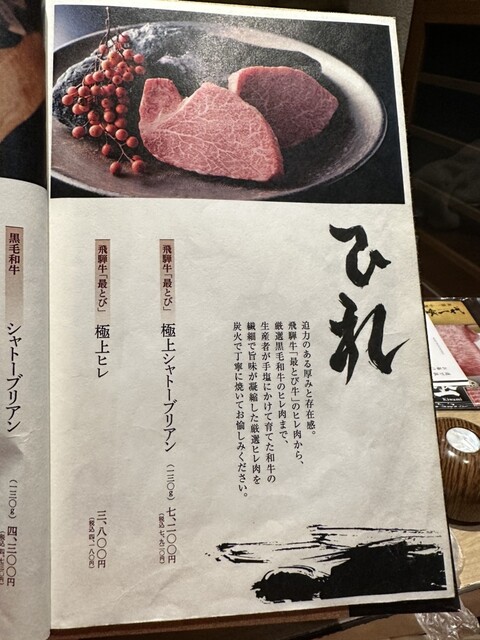 ひれ
迫力のある厚みと存在感。
飛騨牛「最とび牛」のヒレ肉から、
厳選黒毛和牛のヒレ肉まで、
生産者が手塩にかけて育てた和牛の
繊細で旨味が凝縮した厳選ヒレ肉を
炭火で丁寧に焼いてお愉しみください。
飛騨牛「最とび」 極上シャトーブリアン (一三〇g) 七、二〇〇円
(税込 七、九二〇円)
飛騨牛「最とび」 極上ヒレ 三、八〇〇円
(税込 四、一八〇円)
黒毛和牛 シャトーブリアン (一三〇g) 四、三〇〇円